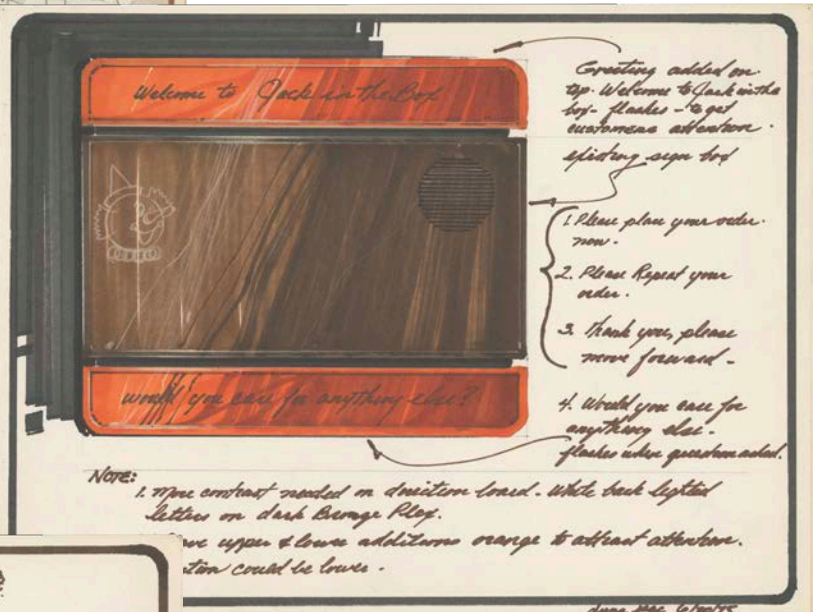 Welcome to Jack in the Box
would you care for anything else?
Greeting added on
top. Welcome to Jack in the
box - flashes - to get
customers attention.
existing sign box
1. Please place your order
now.
2. Please Repeat your
order.
3. Thank you, please
move forward -
4. Would you care for
anything else -
flashes when question asked.
NOTE:
1. More contrast needed on direction board. White back lighted
letters on dark Bronze Plex.
upper & lower additions orange to attract attention.
could be lower.